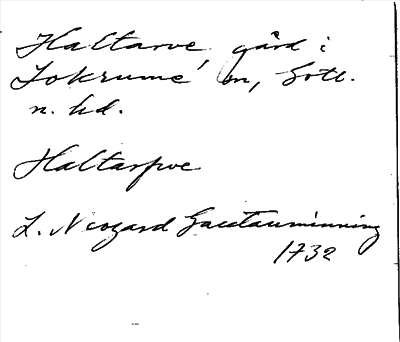 Haltarve, gård i
Lokrume sn, Gotl.
n. hd.
Haltarfve
L. Neogard Gautauminning
1732